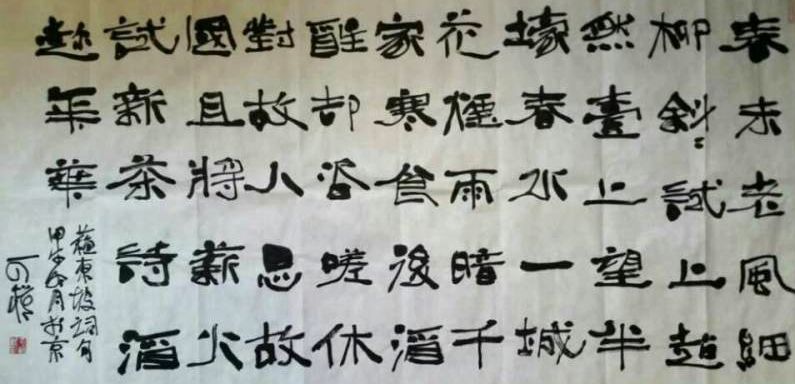 春未老風細
柳斜〻試上超
然臺上望半
壕春水一城
花煙雨暗千
家寒食後酒
醒却咨嗟休
對故人思故
國且將薪火
試新茶詩酒
趁年華
蘇東坡詞句
甲午月於京
可